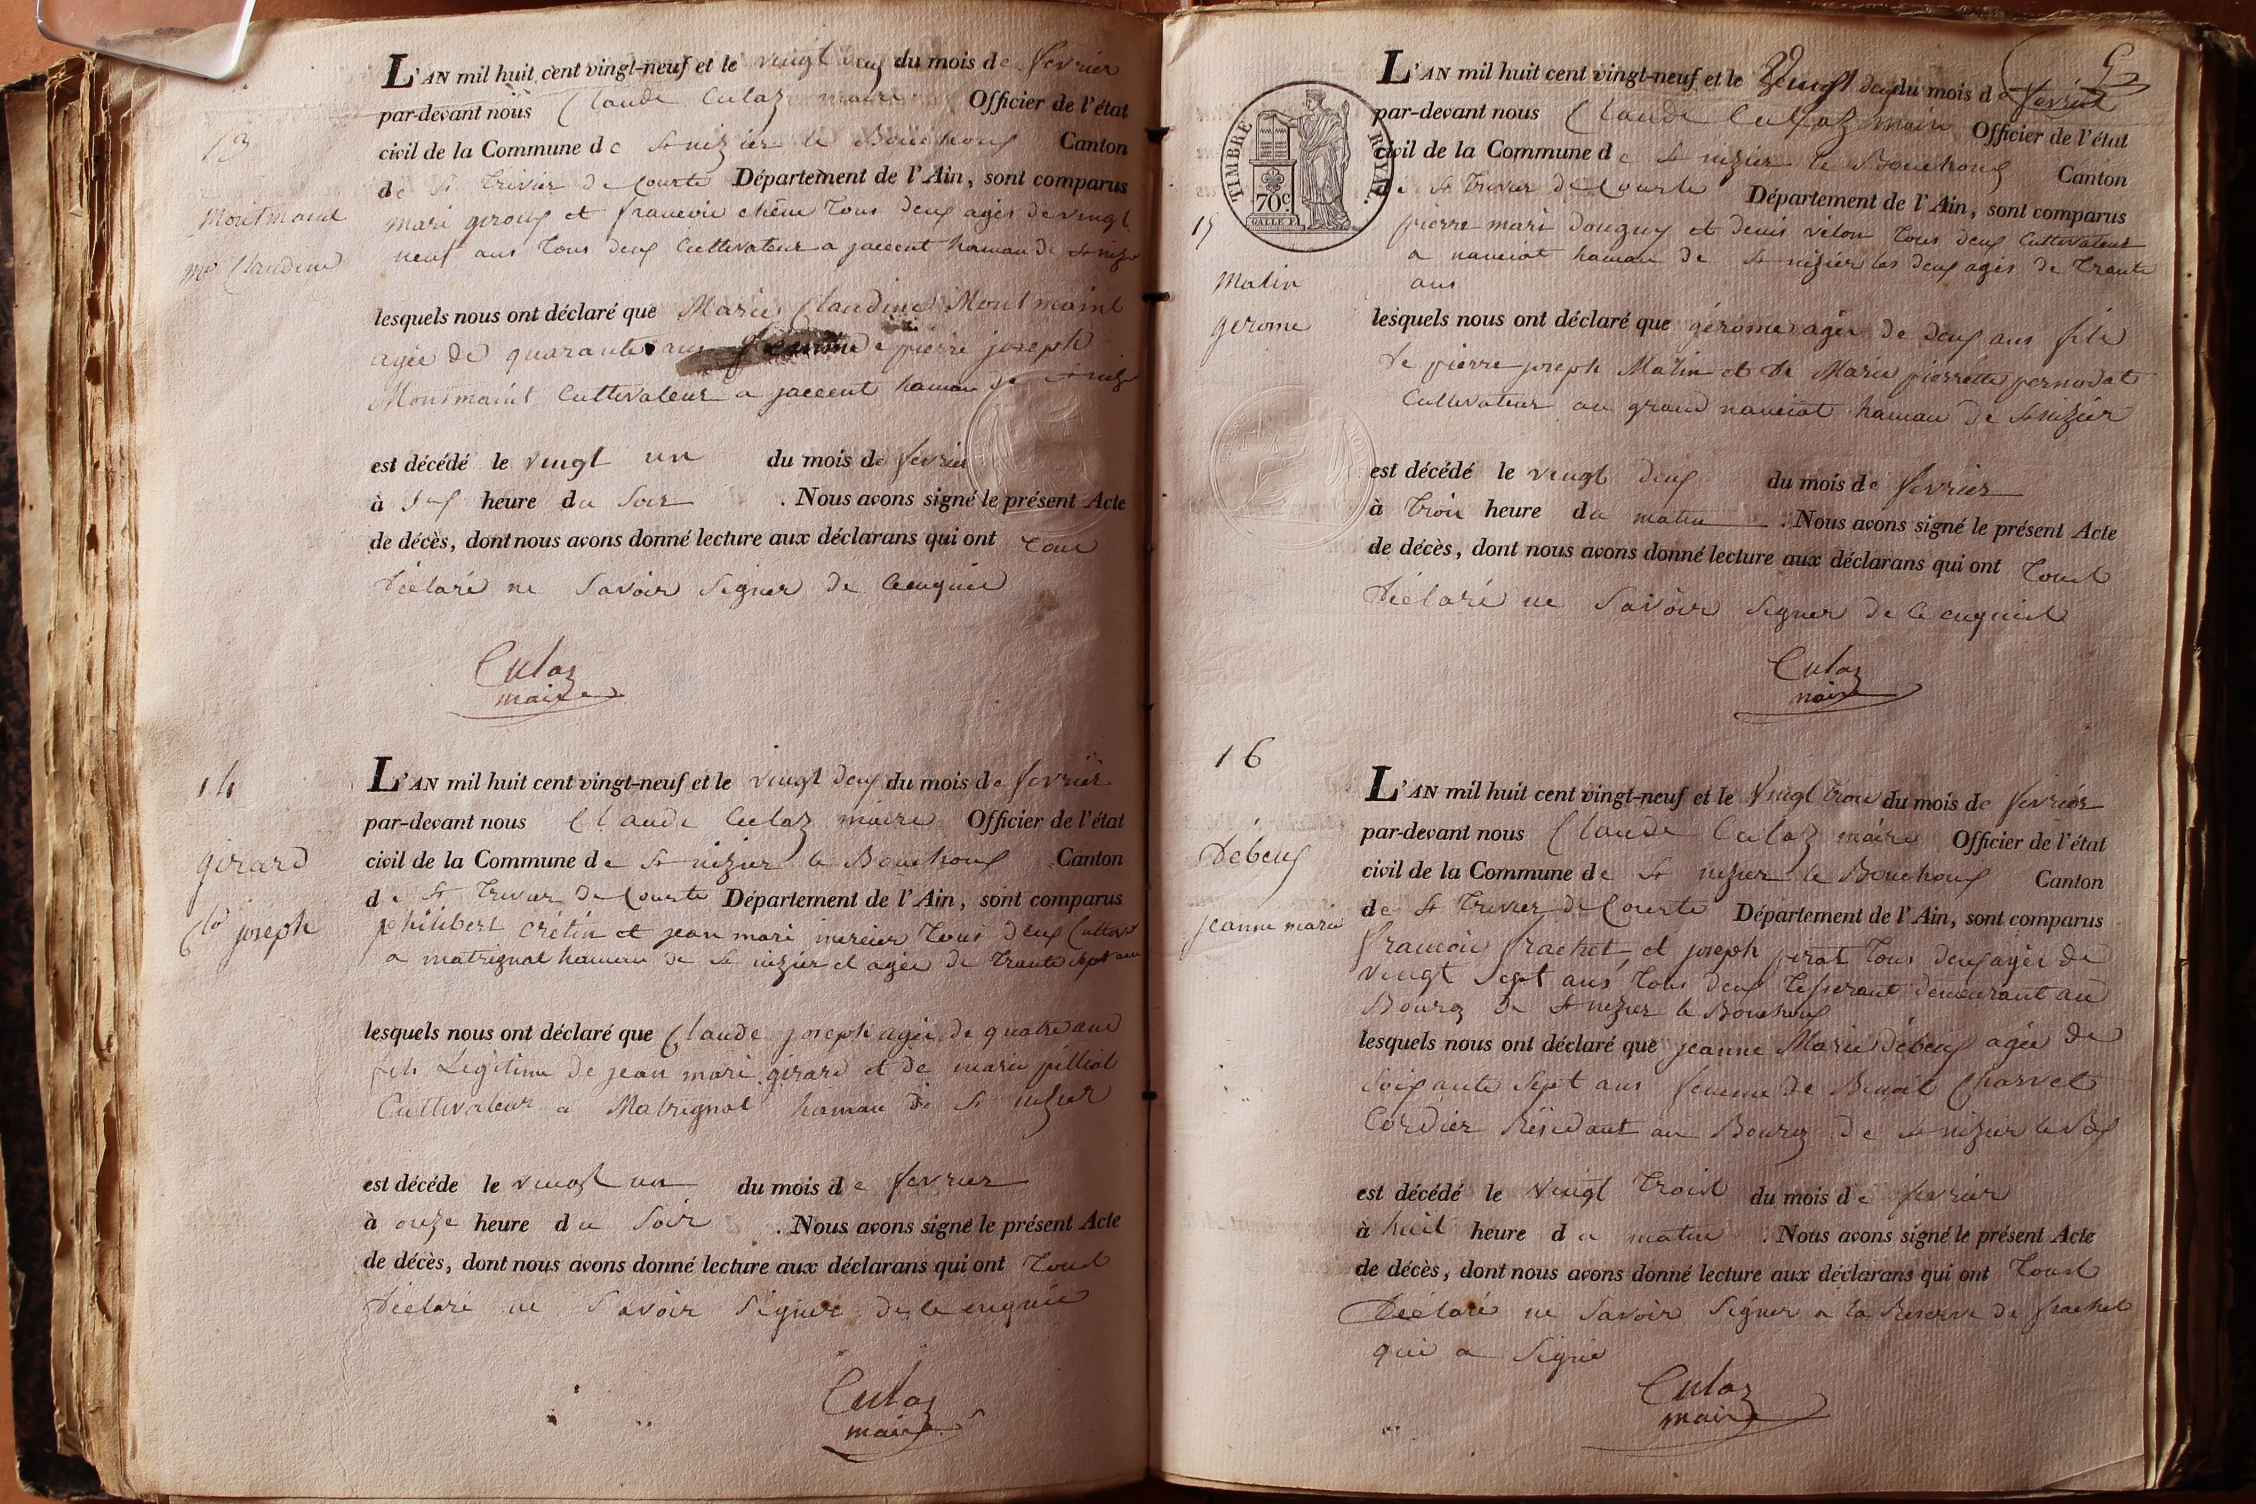 13
Montmaint
Me Claudine
L'AN mil huit cent vingt-neuf et le vingt deux du mois de fevrier
par-devant nous Claude Culaz maire Officier de l'état
civil de la Commune de St nizier le Bouchoux Canton
de St Trivier de Courte Département de l'Ain, sont comparus
mari giroux et francoi chêne tous deux agés de vingt
neuf ans tous deux Cultivateur a hamau de St nizier
lesquels nous ont déclaré que Marie Claudine Montmaint
agée de quarante ans femme pierre joseph
Montmaint Cultivateur a hamau de
est décédé le vingt un du mois de fevrier
à heure du Soir . Nous avons signé le présent Acte
de décès, dont nous avons donné lecture aux déclarans qui ont tous
Déclaré ne Savoir Signer de
Culaz
maire
14
girard
Cld joseph
L'AN mil huit cent vingt-neuf et le vingt deux du mois de fevrier
par-devant nous Claude Culaz maire Officier de l'état
civil de la Commune de St nizier le Bouchoux Canton
de St Trivier de Courte Département de l'Ain, sont comparus
philibert crétin et jean mari mercier tous deux
a matrignat hamau de St nizier et agée de trante sept ans
lesquels nous ont déclaré que Claude joseph agée de quatre ans
fils Légitime de jean mari girard et de marie pilliat
Cultivateur a Matrignat hamau de St nizier
est décéde le vingt un du mois de fevrier
à onze heure du Soir . Nous avons signé le présent Acte
de décès, dont nous avons donné lecture aux déclarans qui ont tous
Déclaré ne Savoir Signer de
Culaz
maire
TIMBRE ROYAL
70c.
15
Matin
gerome
L'AN mil huit cent vingt-neuf et le Vingt deux du mois de fevrier
par-devant nous Claude Culaz maire Officier de l'état
civil de la Commune de St nizier le Bouchoux Canton
de St Trivier de Courte Département de l'Ain, sont comparus
pierre mari Douguy et denis vélon tous deux Cultivateur
a nanciat hamau de St nizier les deux agés de trante
ans
lesquels nous ont déclaré que gérome agée de deux ans fils
de pierre joseph Matin et de Marie pierrette pernodat
Cultivateur au grand nanciat hamau de St nizier
est décédé le vingt deux du mois de fevrier
à trois heure du matin . Nous avons signé le présent Acte
de décès, dont nous avons donné lecture aux déclarans qui ont tous
Déclaré ne Savoir Signer de
Culaz
maire
16
Débeuf
jeanne marie
L'AN mil huit cent vingt-neuf et le Vingt trois du mois de fevrier
par-devant nous Claude Culaz maire Officier de l'état
civil de la Commune de St nizier le Bouchoux Canton
de St Trivier de Courte Département de l'Ain, sont comparus
francoi frachet et joseph perat tous deux agée de
vingt sept ans tous deux tisserant demeurant au
Bourg de St nizier le Bouchoux
lesquels nous ont déclaré que jeanne Marie Débeuf agée de
Soixante Sept ans femme de Benoit Charvet
Cordier Résidant au Bourg de St nizier le
est décédé le Vingt trois du mois de fevrier
à huit heure du matin . Nous avons signé le présent Acte
de décès, dont nous avons donné lecture aux déclarans qui ont tous
Déclaré ne Savoir Signer a la Reserve de frachet
qui a Signé
Culaz
maire